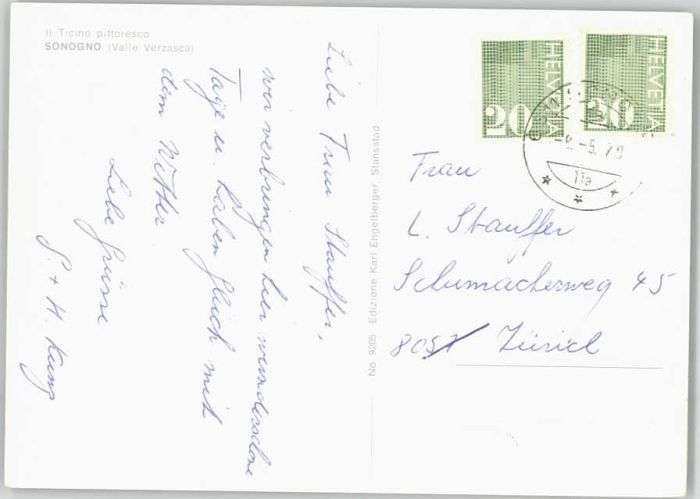 Il Ticino pittoresco
SONOGNO (Valle Verzasca)
Liebe Frau Stauffer,
wir verbringen hier wunderschöne
Tage u. haben Glück mit
dem Wetter.
Liebe Grüsse
S. + H. Kung
No 9205 Edizione Karl Engelberger, Stansstad
HELVETIA
20
HELVETIA
20
11a
Frau
L. Stauffer
Schumacherweg 45
8057 Zürich